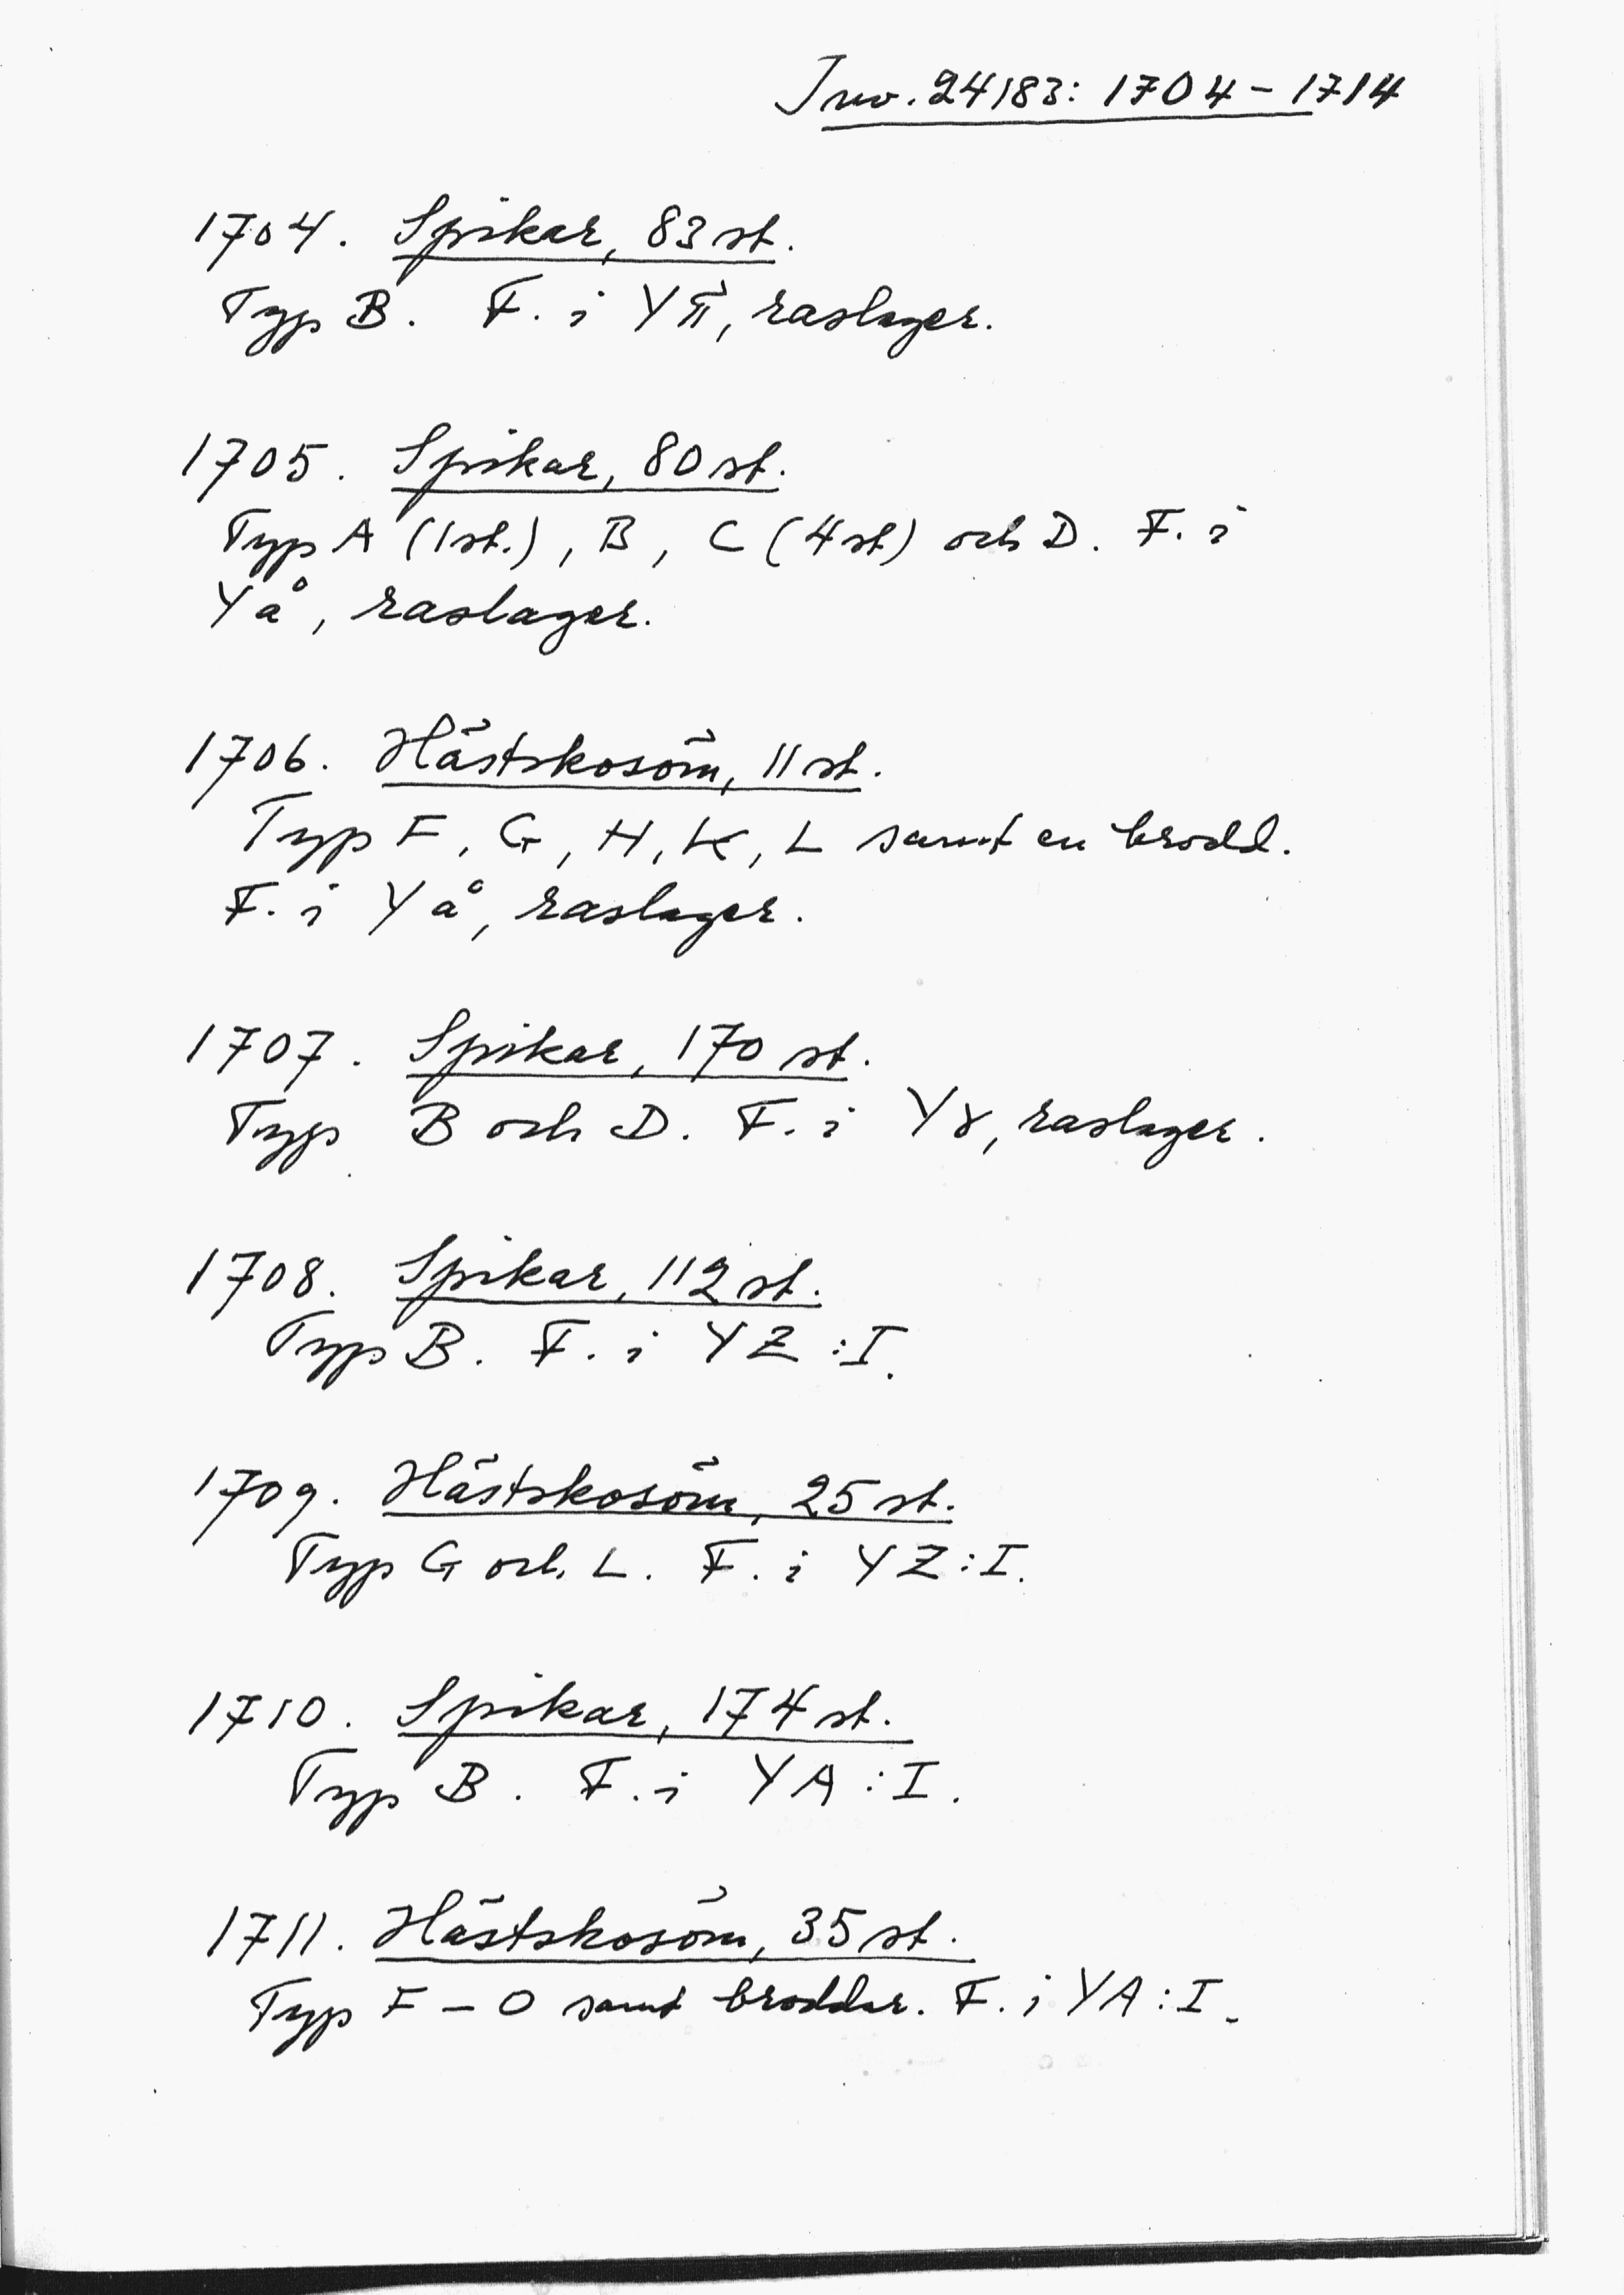 Inv. 24183: 1704-1714
1704. Spikar, 83 st.
Typ B. F. i Yπ, raslager.
1705. Spikar, 80 st.
Typ A (1st.), B, C (4 st) och D. F. i
Yå, raslager.
1706. Hästskosöm, 11 st.
Typ F, G, H, K, L samt en brodd.
F. i Yå, raslager.
1707. Spikar, 170 st.
Typ B och D. F. i Yγ, raslager.
1708. Spikar, 112 st.
Typ B. F. i YZ:I.
1709. Hästskosöm, 25 st.
Typ G och L. F. i YZ:I.
1710. Spikar, 174 st.
Typ B. F. i YA:I.
1711. Hästskosöm, 35 st.
Typ F-O samt broddar. F. i YA:I.